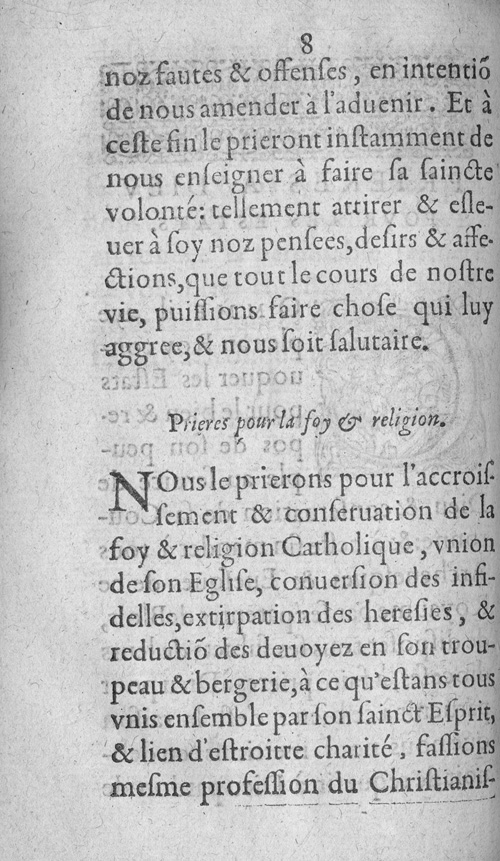 8
noz fautes & offenſes, en intentiõ
de nous amender à l'aduenir. Et à
ceſte fin le prieront inſtamment de
nous enſeigner à faire ſa ſaincte
volonté: tellement attirer & eſle-
uer à ſoy noz penſees, deſirs & affe-
ctions, que tout le cours de noſtre
vie, puiſſions faire choſe qui luy
aggree, & nous ſoit ſalutaire.
Prieres pour la foy & religion.
NOus le prierons pour l'accroiſ-
ſement & conſeruation de la
foy & religion Catholique, vnion
de ſon Egliſe, conuerſion des infi-
delles, extirpation des hereſies, &
reductiõ des deuoyez en ſon trou-
peau & bergerie, à ce qu'eſtans tous
vnis enſemble par ſon ſainct Eſprit,
& lien d'eſtroitte charité, faſſions
meſme profeſſion du Chriſtianiſ-